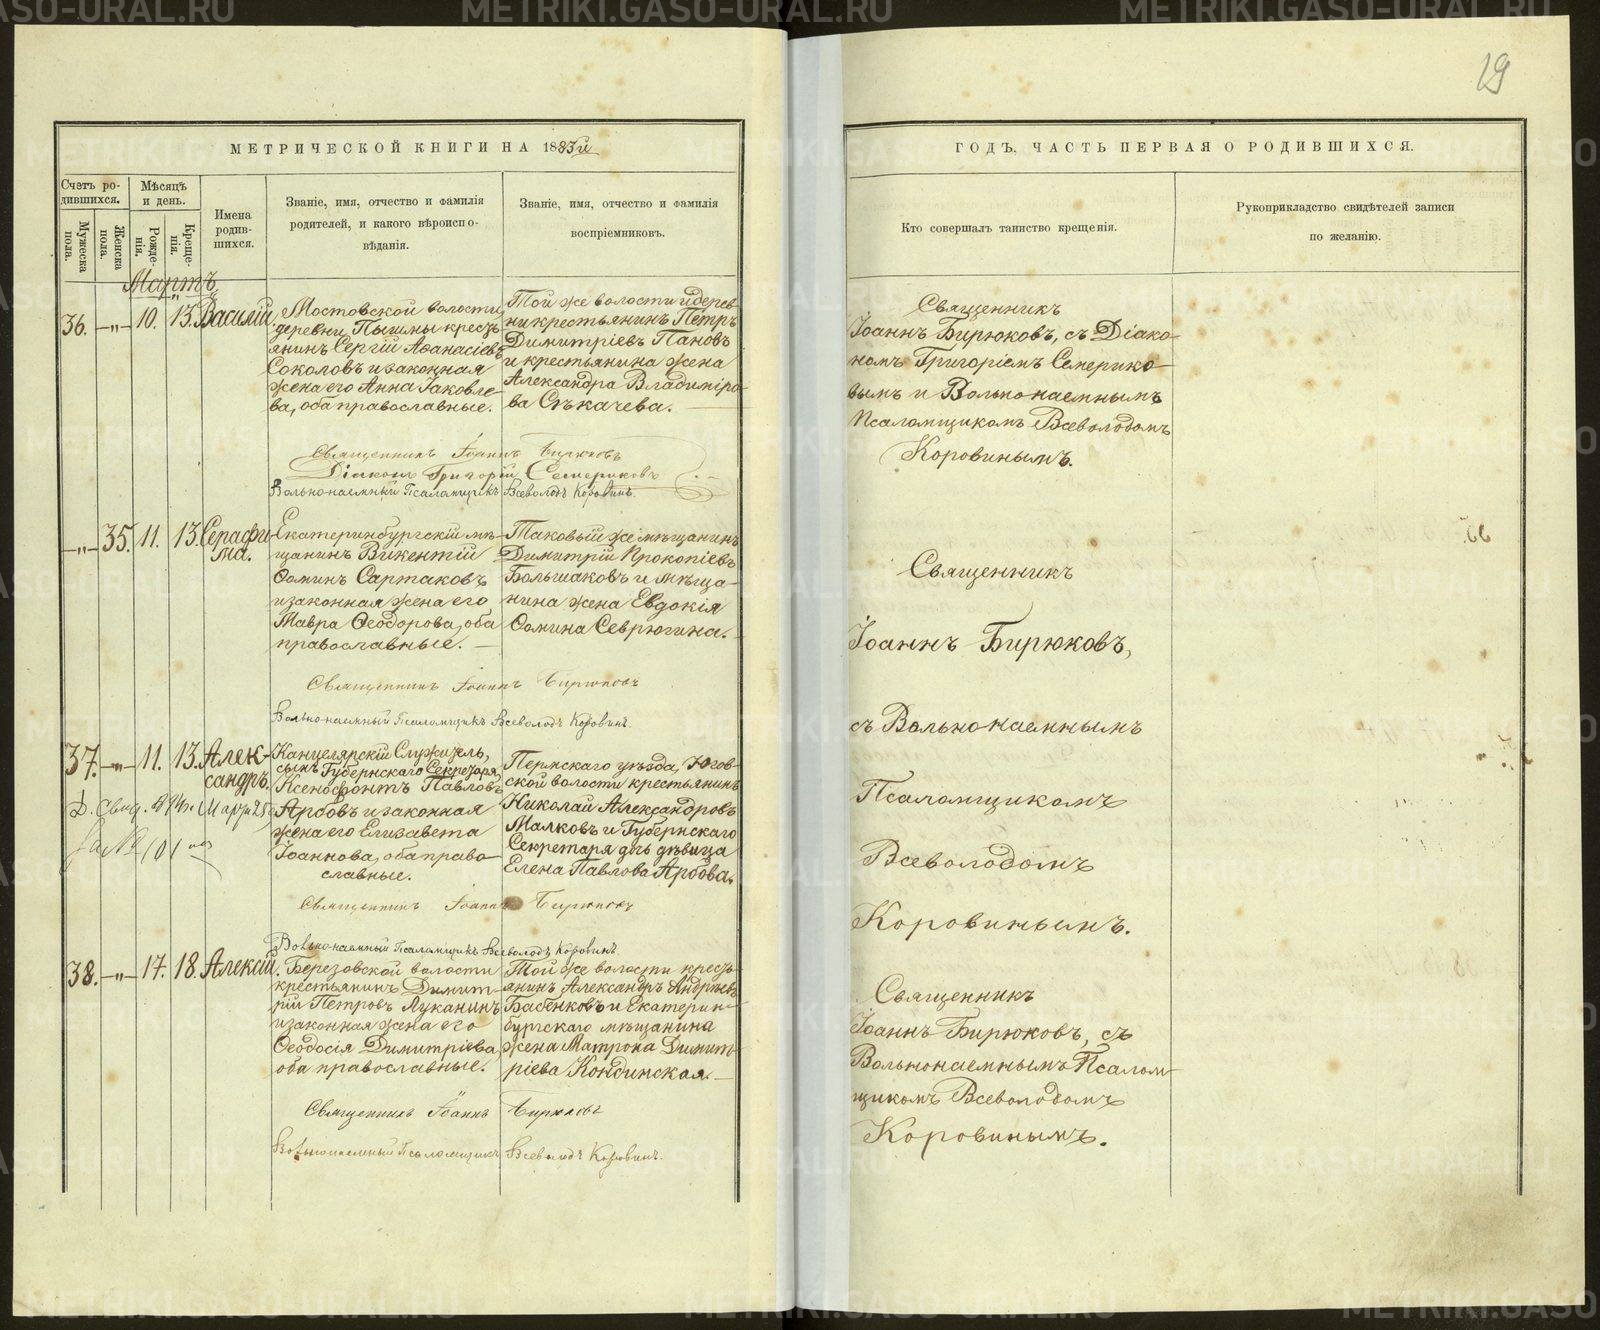 19
МЕТРИЧЕСКОЙ КНИГИ НА 1885й
Счетъ ро-
дившихся.
Мужеска
пола.
Женска
пола.
Мѣсяцъ
и день.
Рожде-
нія.
Креще-
нія.
Имена
родив-
шихся.
Званіе, имя, отчество и фамилія
родителей, и какого вѣроиспо-
вѣданія.
Званіе, имя, отчество и фамилія
воспріемниковъ.
Мартъ
36. —„— 10. 13. Василій.
Мостовской волости,
деревни Пышмы кресть-
янинъ Сергій Аѳанасіевъ
Соколовъ и законная
жена его Анна Іаковле-
ва, оба православные.
Той же волости и дерев-
ни крестьянинъ Петръ
Димитріевъ Пановъ
и крестьянина жена
Александра Владиміро-
ва Сѣкачева.
Священникъ Іоаннъ Бирюковъ
Діаконъ Григорій Семериковъ
Вольнонаемный Псаломщикъ Всеволодъ Коровинъ.
—„— 35. 11. 13. Серафи-
ма.
Екатеринбургскій мѣ-
щанинъ Викентій
Ѳоминъ Сартаковъ
и законная жена его
Мавра Ѳеодорова, оба
православные.
Таковый же мѣщанинъ
Димитрій Прокопіевъ
Большаковъ и мѣща-
нина жена Евдокія
Ѳомина Севрюгина.
Священникъ Іоаннъ Бирюковъ
Вольнонаемный Псаломщикъ Всеволодъ Коровинъ.
37. —„— 11. 13. Алек-
сандръ.
Канцелярскій Служитель,
сынъ Губернскаго Секретаря
Ксенофонтъ Павловъ
Арбовъ и законная
жена его Елизавета
Іоаннова, оба право-
славные.
Пермскаго уѣзда, Югов-
ской волости крестьянинъ
Николай Александровъ
Малковъ и Губернскаго
Секретаря дочь дѣвица
Елена Павлова Арбова.
за № 101
Священникъ Іоаннъ Бирюковъ
Вольнонаемный Псаломщикъ Всеволодъ Коровинъ.
38. —„— 17. 18. Алексій.
Березовской волости
крестьянинъ Димит-
рій Петровъ Луканинъ
и законная жена его
Ѳеодосія Димитріева,
оба православные.
Той же волости кресть-
янинъ Александръ Андреевъ
Бабенковъ и Екатерин-
бургскаго мѣщанина
жена Матрона Димит-
ріева Кондинская.
Священникъ Іоаннъ Бирюковъ
Вольнонаемный Псаломщикъ Всеволодъ Коровинъ.
ГОДЪ, ЧАСТЬ ПЕРВАЯ О РОДИВШИХСЯ.
Кто совершалъ таинство крещенія.
Рукоприкладство свидѣтелей записи
по желанію.
Священникъ
Іоаннъ Бирюковъ, съ Діако-
номъ Григоріемъ Семерико-
вымъ и Вольнонаемнымъ
Псаломщикомъ Всеволодомъ
Коровинымъ.
Священникъ
Іоаннъ Бирюковъ,
съ Вольнонаемнымъ
Псаломщикомъ
Всеволодомъ
Коровинымъ.
Священникъ
Іоаннъ Бирюковъ, съ
Вольнонаемнымъ Псалом-
щикомъ Всеволодомъ
Коровинымъ.
METRIKI.GASO-URAL.RU